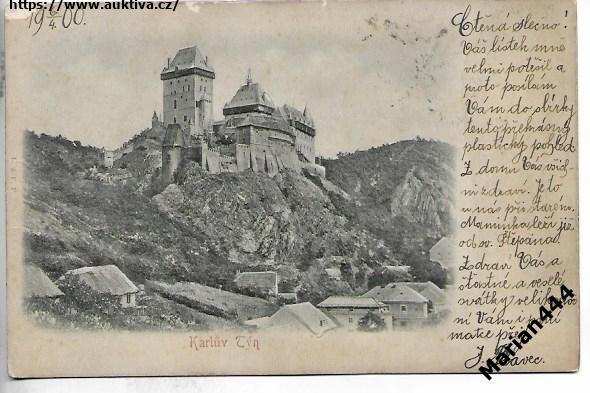 https://www.auktiva.cz/
19 6/4 00.
Ctěná slečno!
Váš lístek mne
velmi potěšil a
proto posílám
Vám do sbírky
tento překrásný
plastický pohled.
Z domu Vás všich-
ni zdraví. Je to
u nás při starém.
Maminka leží již
od sv. Štěpána.
Zdraví Vás a
šťastné a veselé
svátky veliko-
ní Vám i pa
matce přeje
J.
Karlův Týn
Marian444